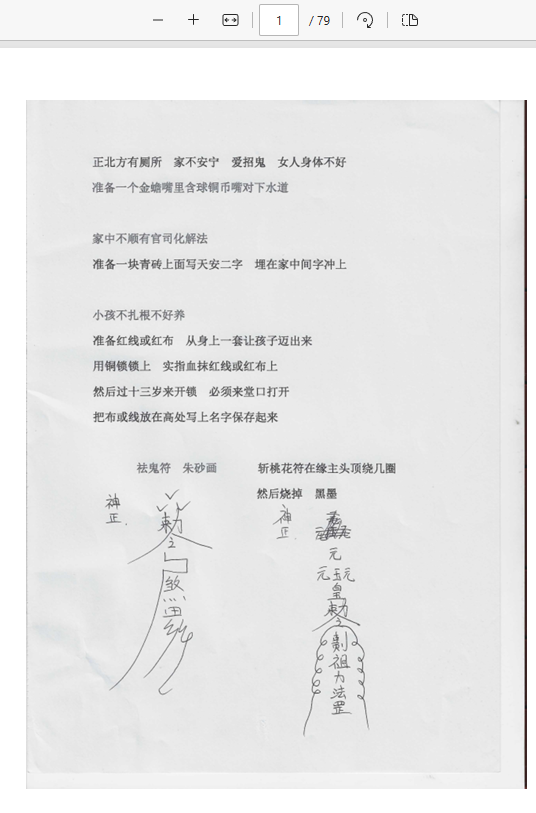 1 / 79
正北方有厕所 家不安宁 爱招鬼 女人身体不好
准备一个金蟾嘴里含球铜币嘴对下水道
家中不顺有官司化解法
准备一块青砖上面写天安二字 埋在家中间字冲上
小孩不扎根不好养
准备红线或红布 从身上一套让孩子迈出来
用铜锁锁上 实指血抹红线或红布上
然后过十三岁来开锁 必须来堂口打开
把布或线放在高处写上名字保存起来
祛鬼符 朱砂画
斩桃花符在缘主头顶绕几圈
然后烧掉 黑墨
神正
敕
煞
神正
元
元玉元
皇
敕
祖
力
法
罡